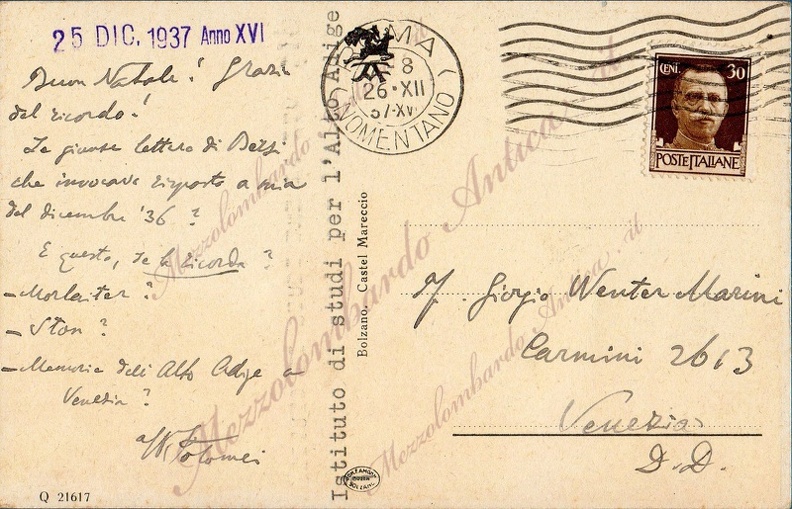 25 DIC. 1937 Anno XVI
Buon Natale! Grazie
del ricordo!
Le giunse lettera di
che invocava risposta a mia
del dicembre '36?
E questo, se lo ricorda?
- Morlaiter?
- Ston?
- Memorie dell'Alto Adige a
Venezia?
aff. Tolomei
Q 21617
Istituto di studi per l'Alto Adige
Bolzano. Castel Mareccio
ROMA
8
26·XII
37-XV
(NOMENTANO)
CENT. 30
POSTE ITALIANE
Giorgio Wenter Marini
Carmini 2613
Venezia
D.D.
Mezzolombardo Antica.it
Mezzolombardo Antica.it